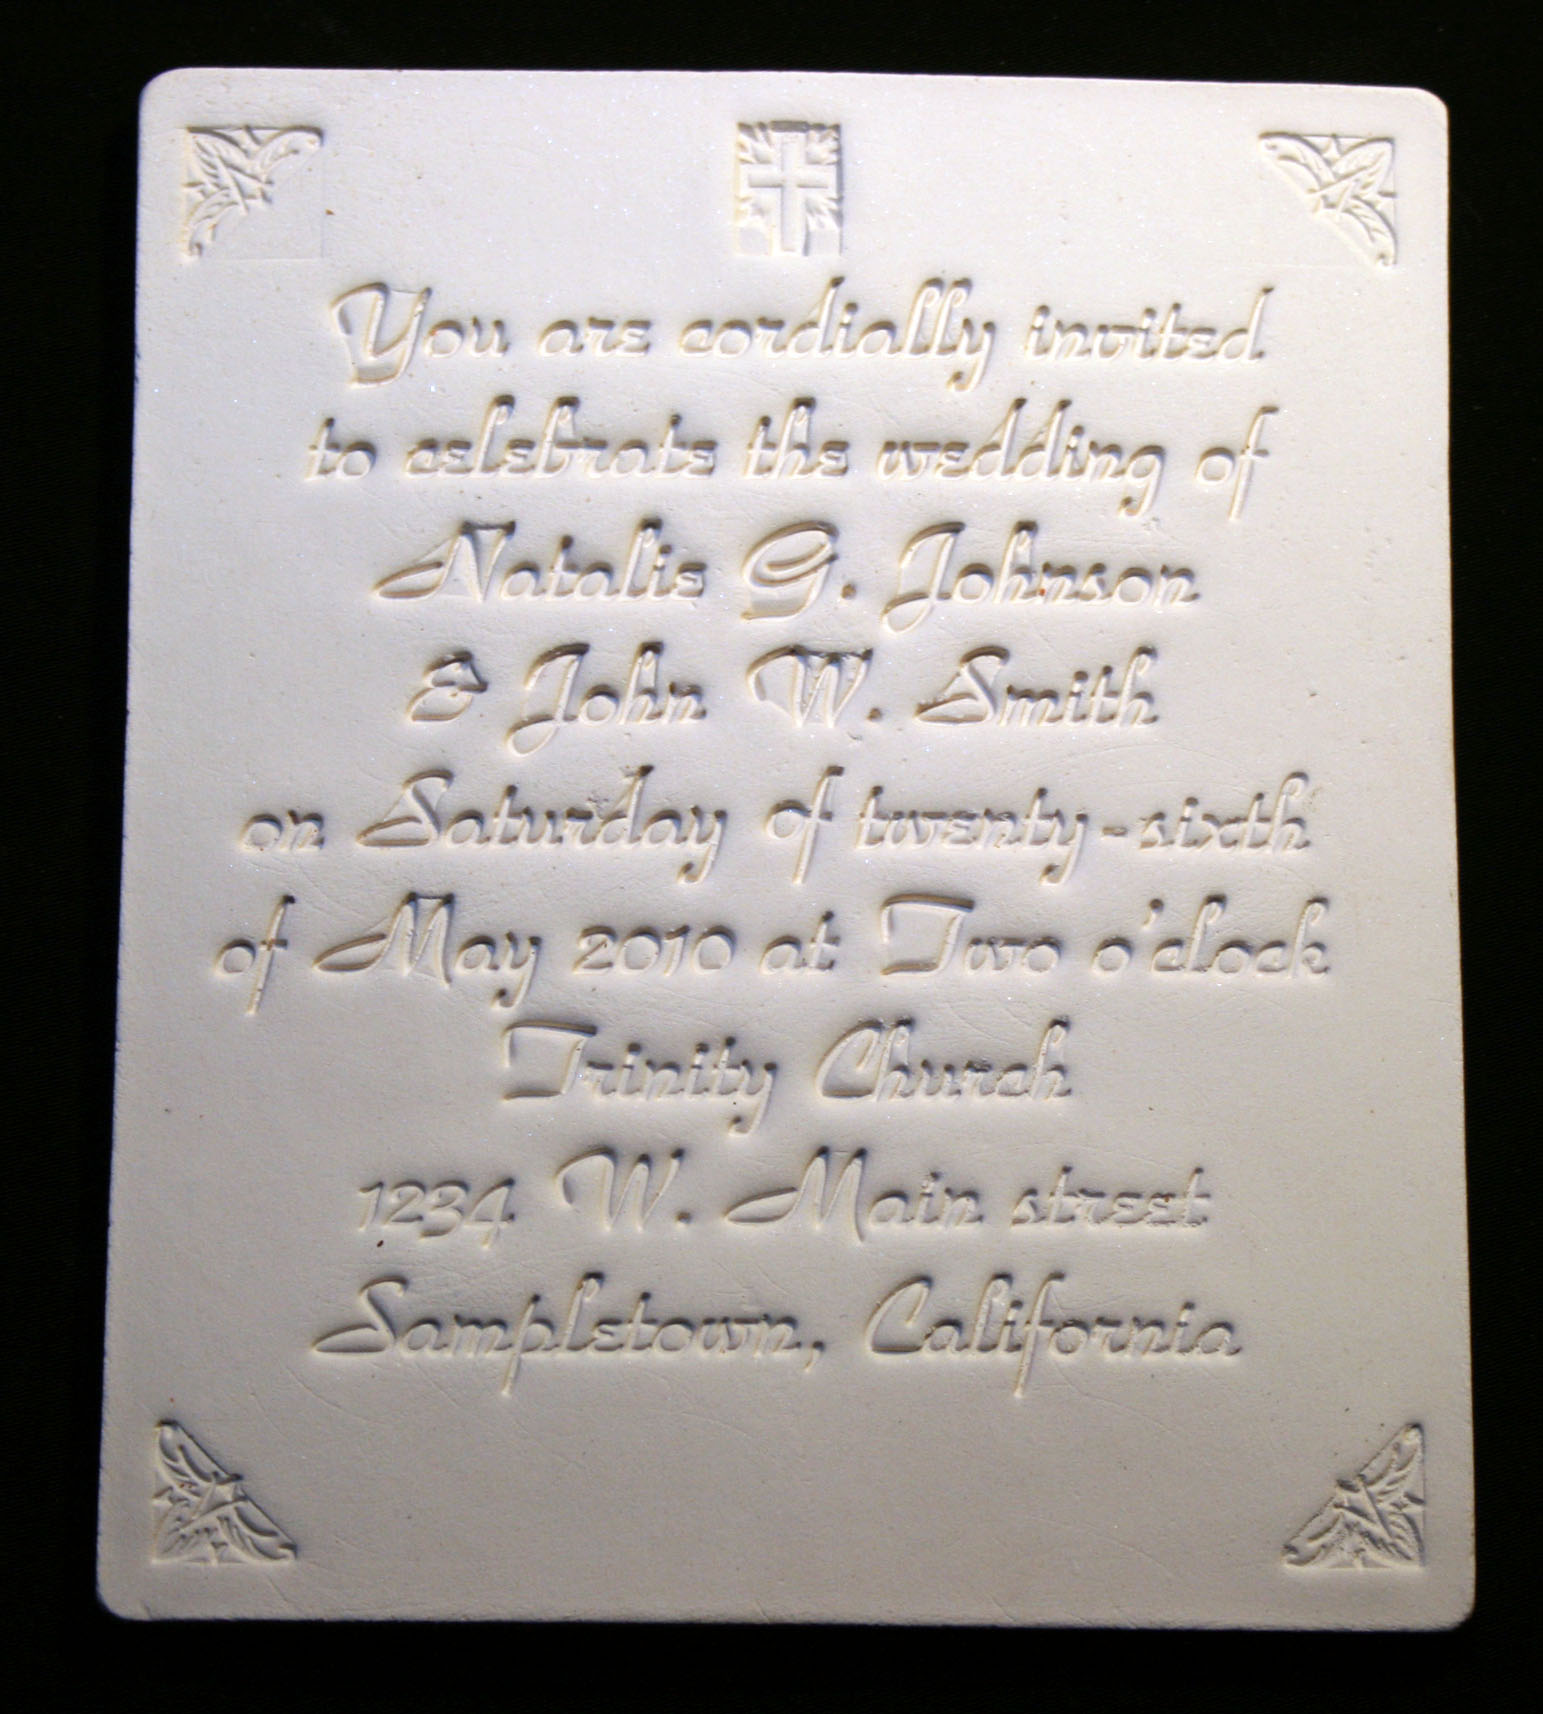 You are cordially invited
to celebrate the wedding of
Natalie G. Johnson
& John W. Smith
on Saturday of twenty-sixth
of May 2010 at Two o'clock
Trinity Church
1234 W. Main street
Sampletown, California